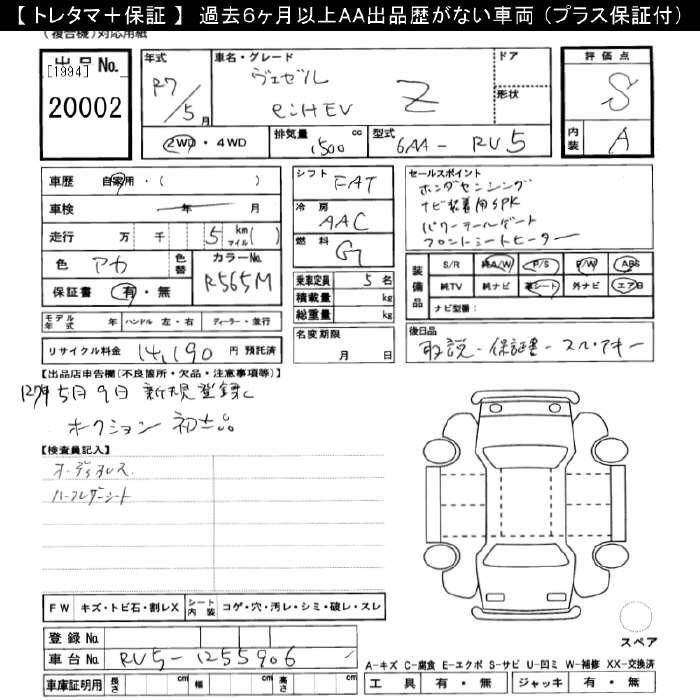 【 トレタマ＋保証 】 過去6ヶ月以上AA出品歴がない車両 (プラス保証付)
(複合機)対応用紙
出品 No.
[1994]
20002
年式
R7/5月
車名・グレード
ヴェゼル
e:HEV Z
ドア
形状
評価点
S
内装 A
2WD・4WD
排気量 1,500 cc
型式 6AA- RV5
車歴 自家用・( )
車検 年 月
走行 万 千 5 km マイル( )
色 アカ 色替 カラーNo. R565M
保証書 有・無
シフト FAT
冷房 AAC
燃料 G
乗車定員 5 名
積載量 kg
総重量 kg
名変期限
月 日
セールスポイント
ホンダセンシング
ナビ装着用SPK
パワーテールゲート
フロントシートヒーター
装備品
S/R 純A/W P/S P/W ABS
純TV 純ナビ 革シート 外ナビ エアB
ナビ型番:
モデル年式 年 ハンドル 左・右 ディーラー・並行
リサイクル料金 14,190 円 預託済
後日品
取説-保証書-スペアキー
【出品店申告欄(不良箇所・欠品・注意事項等)】
R7年5月9日 新規登録
オークション 初出品
【検査員記入】
オーディオレス
ハーフレザーシート
FW キズ・トビ石・割レX シート内装 コゲ・穴・汚レ・シミ・破レ・スレ
登録 No.
車台 No. RV5-1255906
車庫証明用 長さ cm 幅 cm 高さ cm
スペア
A-キズ C-腐食 E-エクボ S-サビ U-凹ミ W-補修 XX-交換済
工具 有・無 ジャッキ 有・無